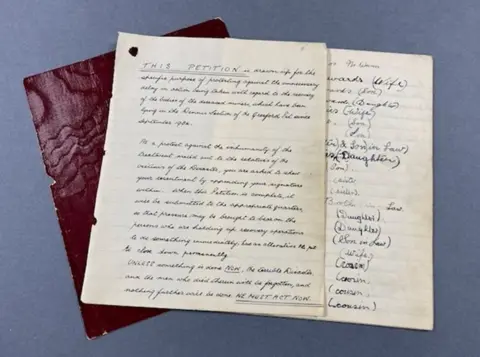 THIS PETITION is drawn up for the
specific purpose of protesting against the unnecessary
delay in action being taken with regard to the recovery
of the bodies of the deceased miners, which have been
lying in the Dennis Section of the Gresford Pit since
September 1934.
As a protest against the inhumanity of the
meted out to the relatives of the
victims of the Disaster, you are asked to show
your resentment by appending your signature
within. When this Petition is complete, it
will be submitted to the appropriate quarter,
so that pressure may be brought to bear on the
persons who are holding up recovery operations
to do something immediately, has as the pit
to close down permanently.
UNLESS something is done NOW, the terrible Disaster
and the men who died therein will be forgotten, and
nothing further will be done. WE MUST ACT NOW.
(Wife)
(Son)
(Daughter)
(Wife)
(Son)
(Son)
& Son in Law
(Daughter)
Son)
(sister)
(sister)
Brother in Law
(Daughter)
(Daughter)
(Son in Law)
(Wife)
(cousin)
(cousin
cousin
(cousin)